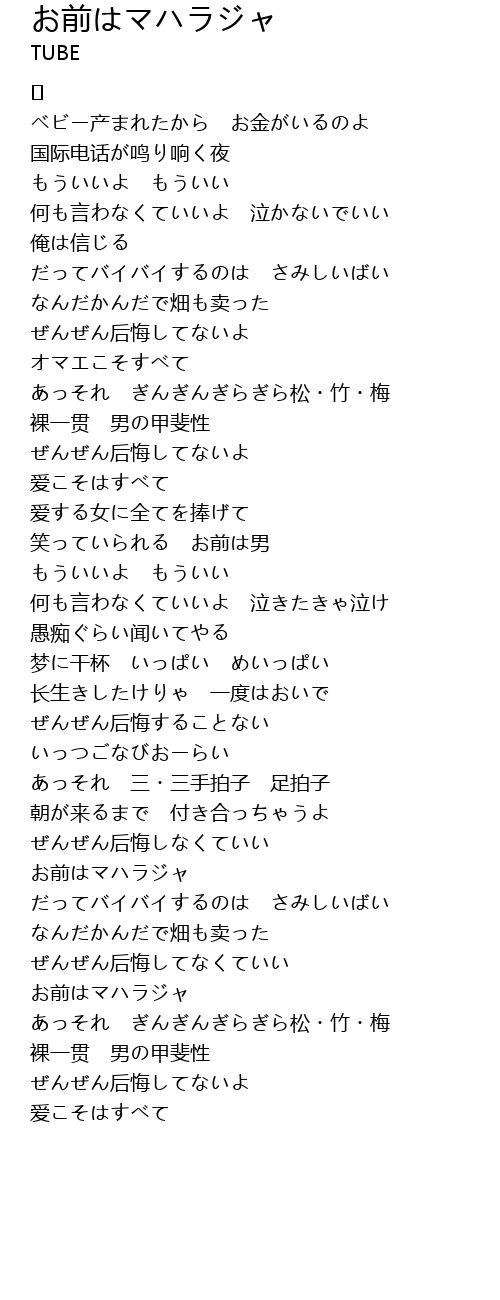 お前はマハラジャ
TUBE
ベビー产まれたから　お金がいるのよ
国际电话が鸣り响く夜
もういいよ　もういい
何も言わなくていいよ　泣かないでいい
俺は信じる
だってバイバイするのは　さみしいばい
なんだかんだで畑も卖った
ぜんぜん后悔してないよ
オマエこそすべて
あっそれ　ぎんぎんぎらぎら松・竹・梅
裸一贯　男の甲斐性
ぜんぜん后悔してないよ
爱こそはすべて
爱する女に全てを捧げて
笑っていられる　お前は男
もういいよ　もういい
何も言わなくていいよ　泣きたきゃ泣け
愚痴ぐらい闻いてやる
梦に干杯　いっぱい　めいっぱい
长生きしたけりゃ　一度はおいで
ぜんぜん后悔することない
いっつごなびおーらい
あっそれ　三・三手拍子　足拍子
朝が来るまで　付き合っちゃうよ
ぜんぜん后悔しなくていい
お前はマハラジャ
だってバイバイするのは　さみしいばい
なんだかんだで畑も卖った
ぜんぜん后悔してなくていい
お前はマハラジャ
あっそれ　ぎんぎんぎらぎら松・竹・梅
裸一贯　男の甲斐性
ぜんぜん后悔してないよ
爱こそはすべて